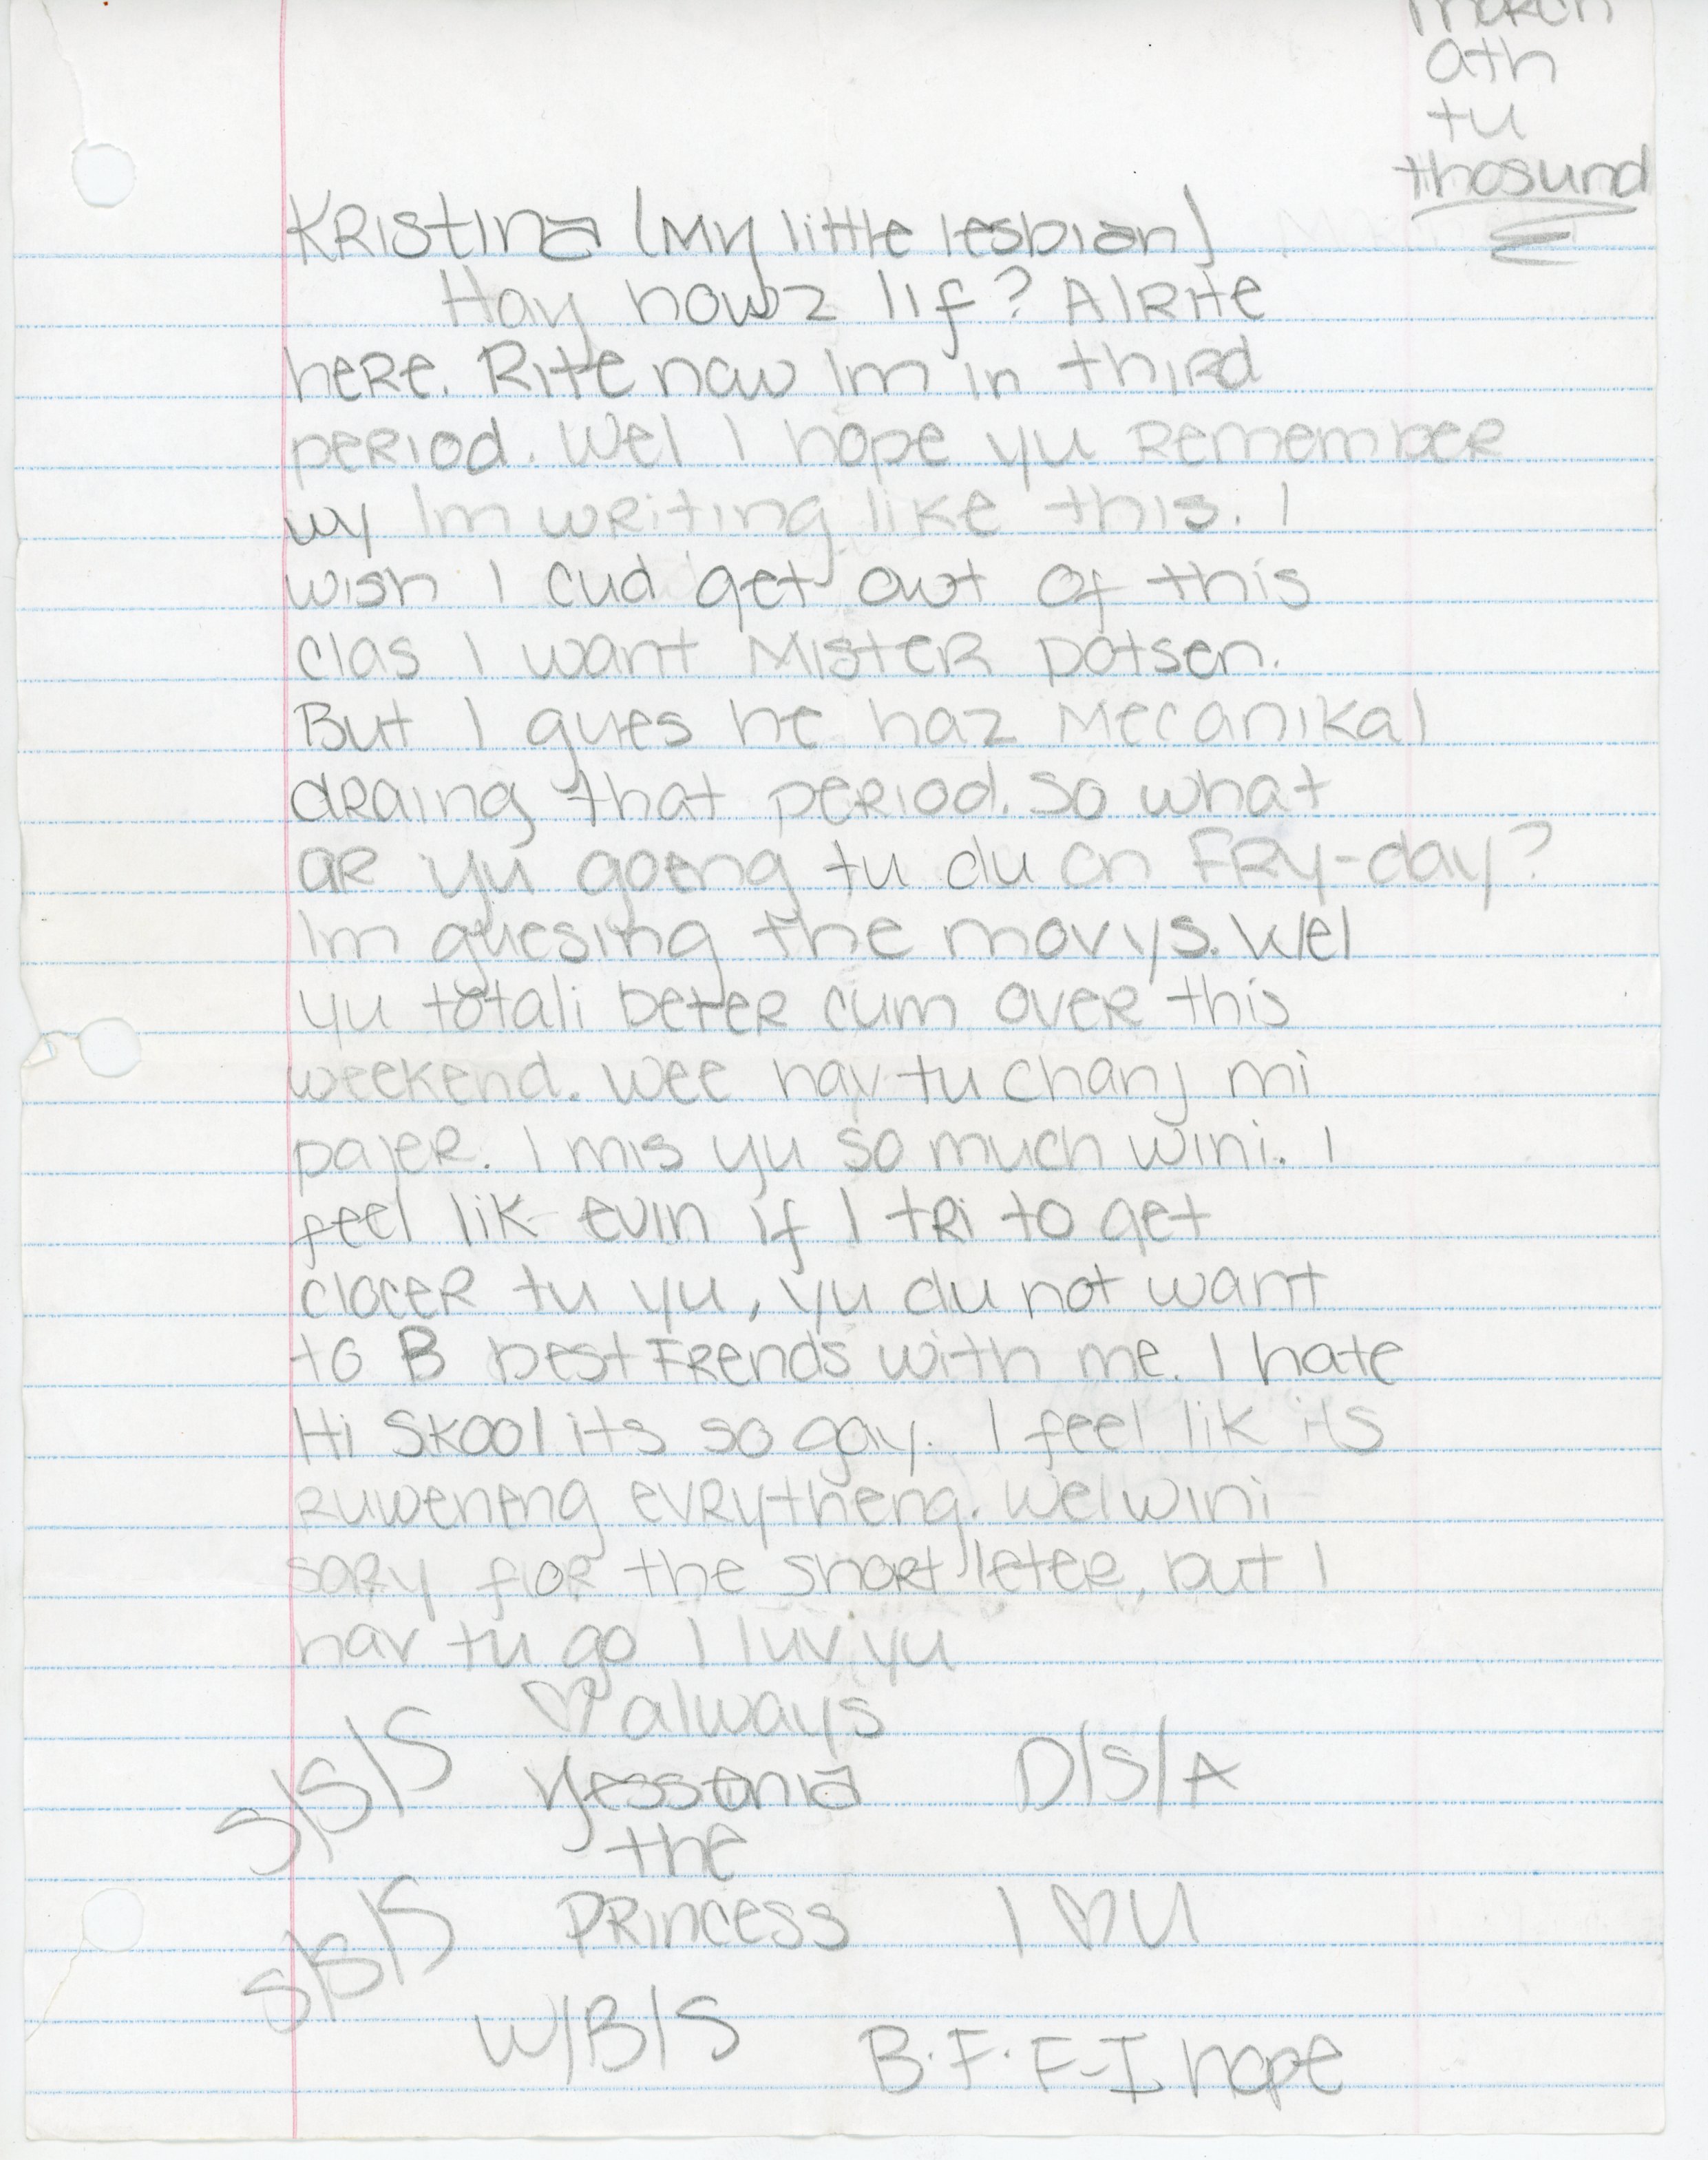 march
ath
tu
thosund
Kristina (My little lesbian)
Hay howz lif? Alrite
here. Rite now Im in third
period. Wel I hope yu remember
wy Im writing like this. I
wish I cud get owt of this
clas I want Mister potsen.
But I gues he haz Mecanikal
draing that period. So what
ar yu goeng tu du on Fry-day?
Im guesing the movys. Wel
yu totali beter cum over this
weekend. Wee hav tu chanj mi
pajer. I mis yu so much wini. I
feel lik evin if I tri to get
clocer tu yu, yu du not want
to B best Frends with me. I hate
Hi Skool its so gay. I feel lik its
ruweneng evrytheng. Wel wini
sory fior the short leter, but I
hav tu go I luv yu
♡ always
S/S/S
Yessenia
D/S/A
the
Princess
I ♡ U
S/B/S
W/B/S
B.F.F-I hope